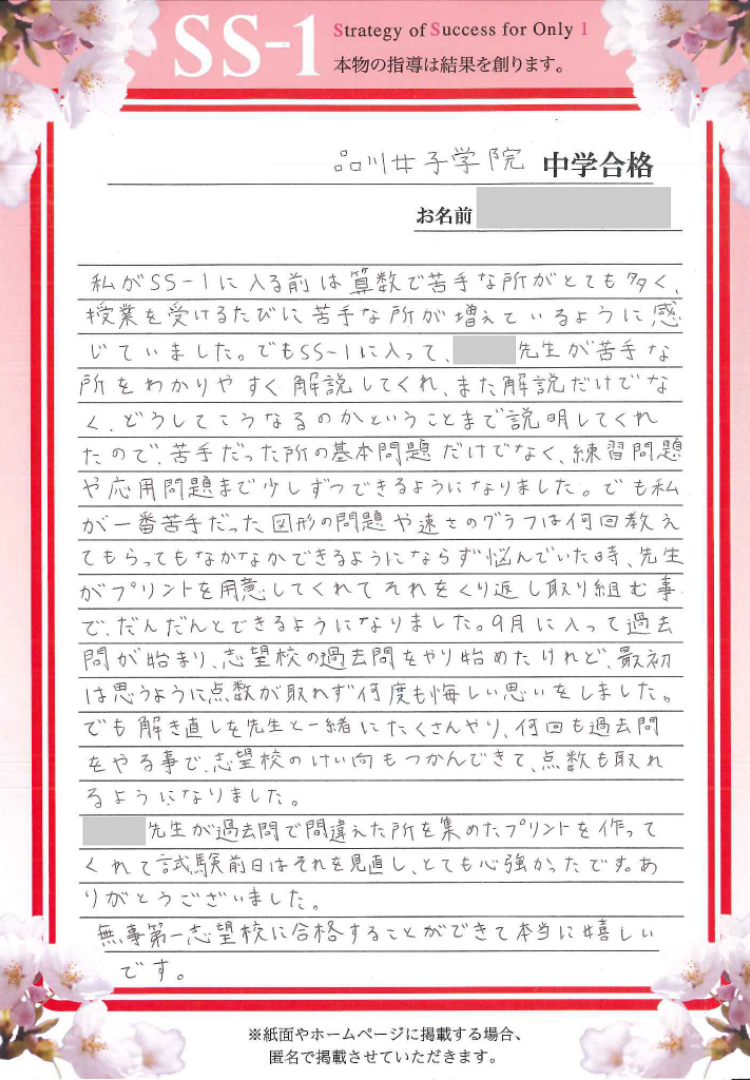 SS-1 Strategy of Success for Only 1
本物の指導は結果を創ります。
品川女子学院 中学合格
お名前
私がSS-1に入る前は算数で苦手な所がとても多く、
授業を受けるたびに苦手な所が増えているように感
じていました。でもSS-1に入って、先生が苦手な
所をわかりやすく解説してくれ、また解説だけでな
く、どうしてこうなるのかということまで説明してくれ
たので、苦手だった所の基本問題だけでなく、練習問題
や応用問題まで少しずつできるようになりました。でも私
が一番苦手だった図形の問題や速さのグラフは何回教え
てもらってもなかなかできるようにならず悩んでいた時、先生
がプリントを用意してくれてそれをくり返し取り組む事
で、だんだんとできるようになりました。9月に入って過去
問が始まり、志望校の過去問をやり始めたけれど、最初
は思うように点数が取れず何度も悔しい思いをしました。
でも解き直しを先生と一緒にたくさんやり、何回も過去問
をやる事で、志望校のけい向もつかんできて、点数も取れ
るようになりました。
先生が過去問で間違えた所を集めたプリントを作って
くれて試験前日はそれを見直し、とても心強かったです。あ
りがとうございました。
無事第一志望校に合格することができて本当に嬉しい
です。
※紙面やホームページに掲載する場合、
匿名で掲載させていただきます。